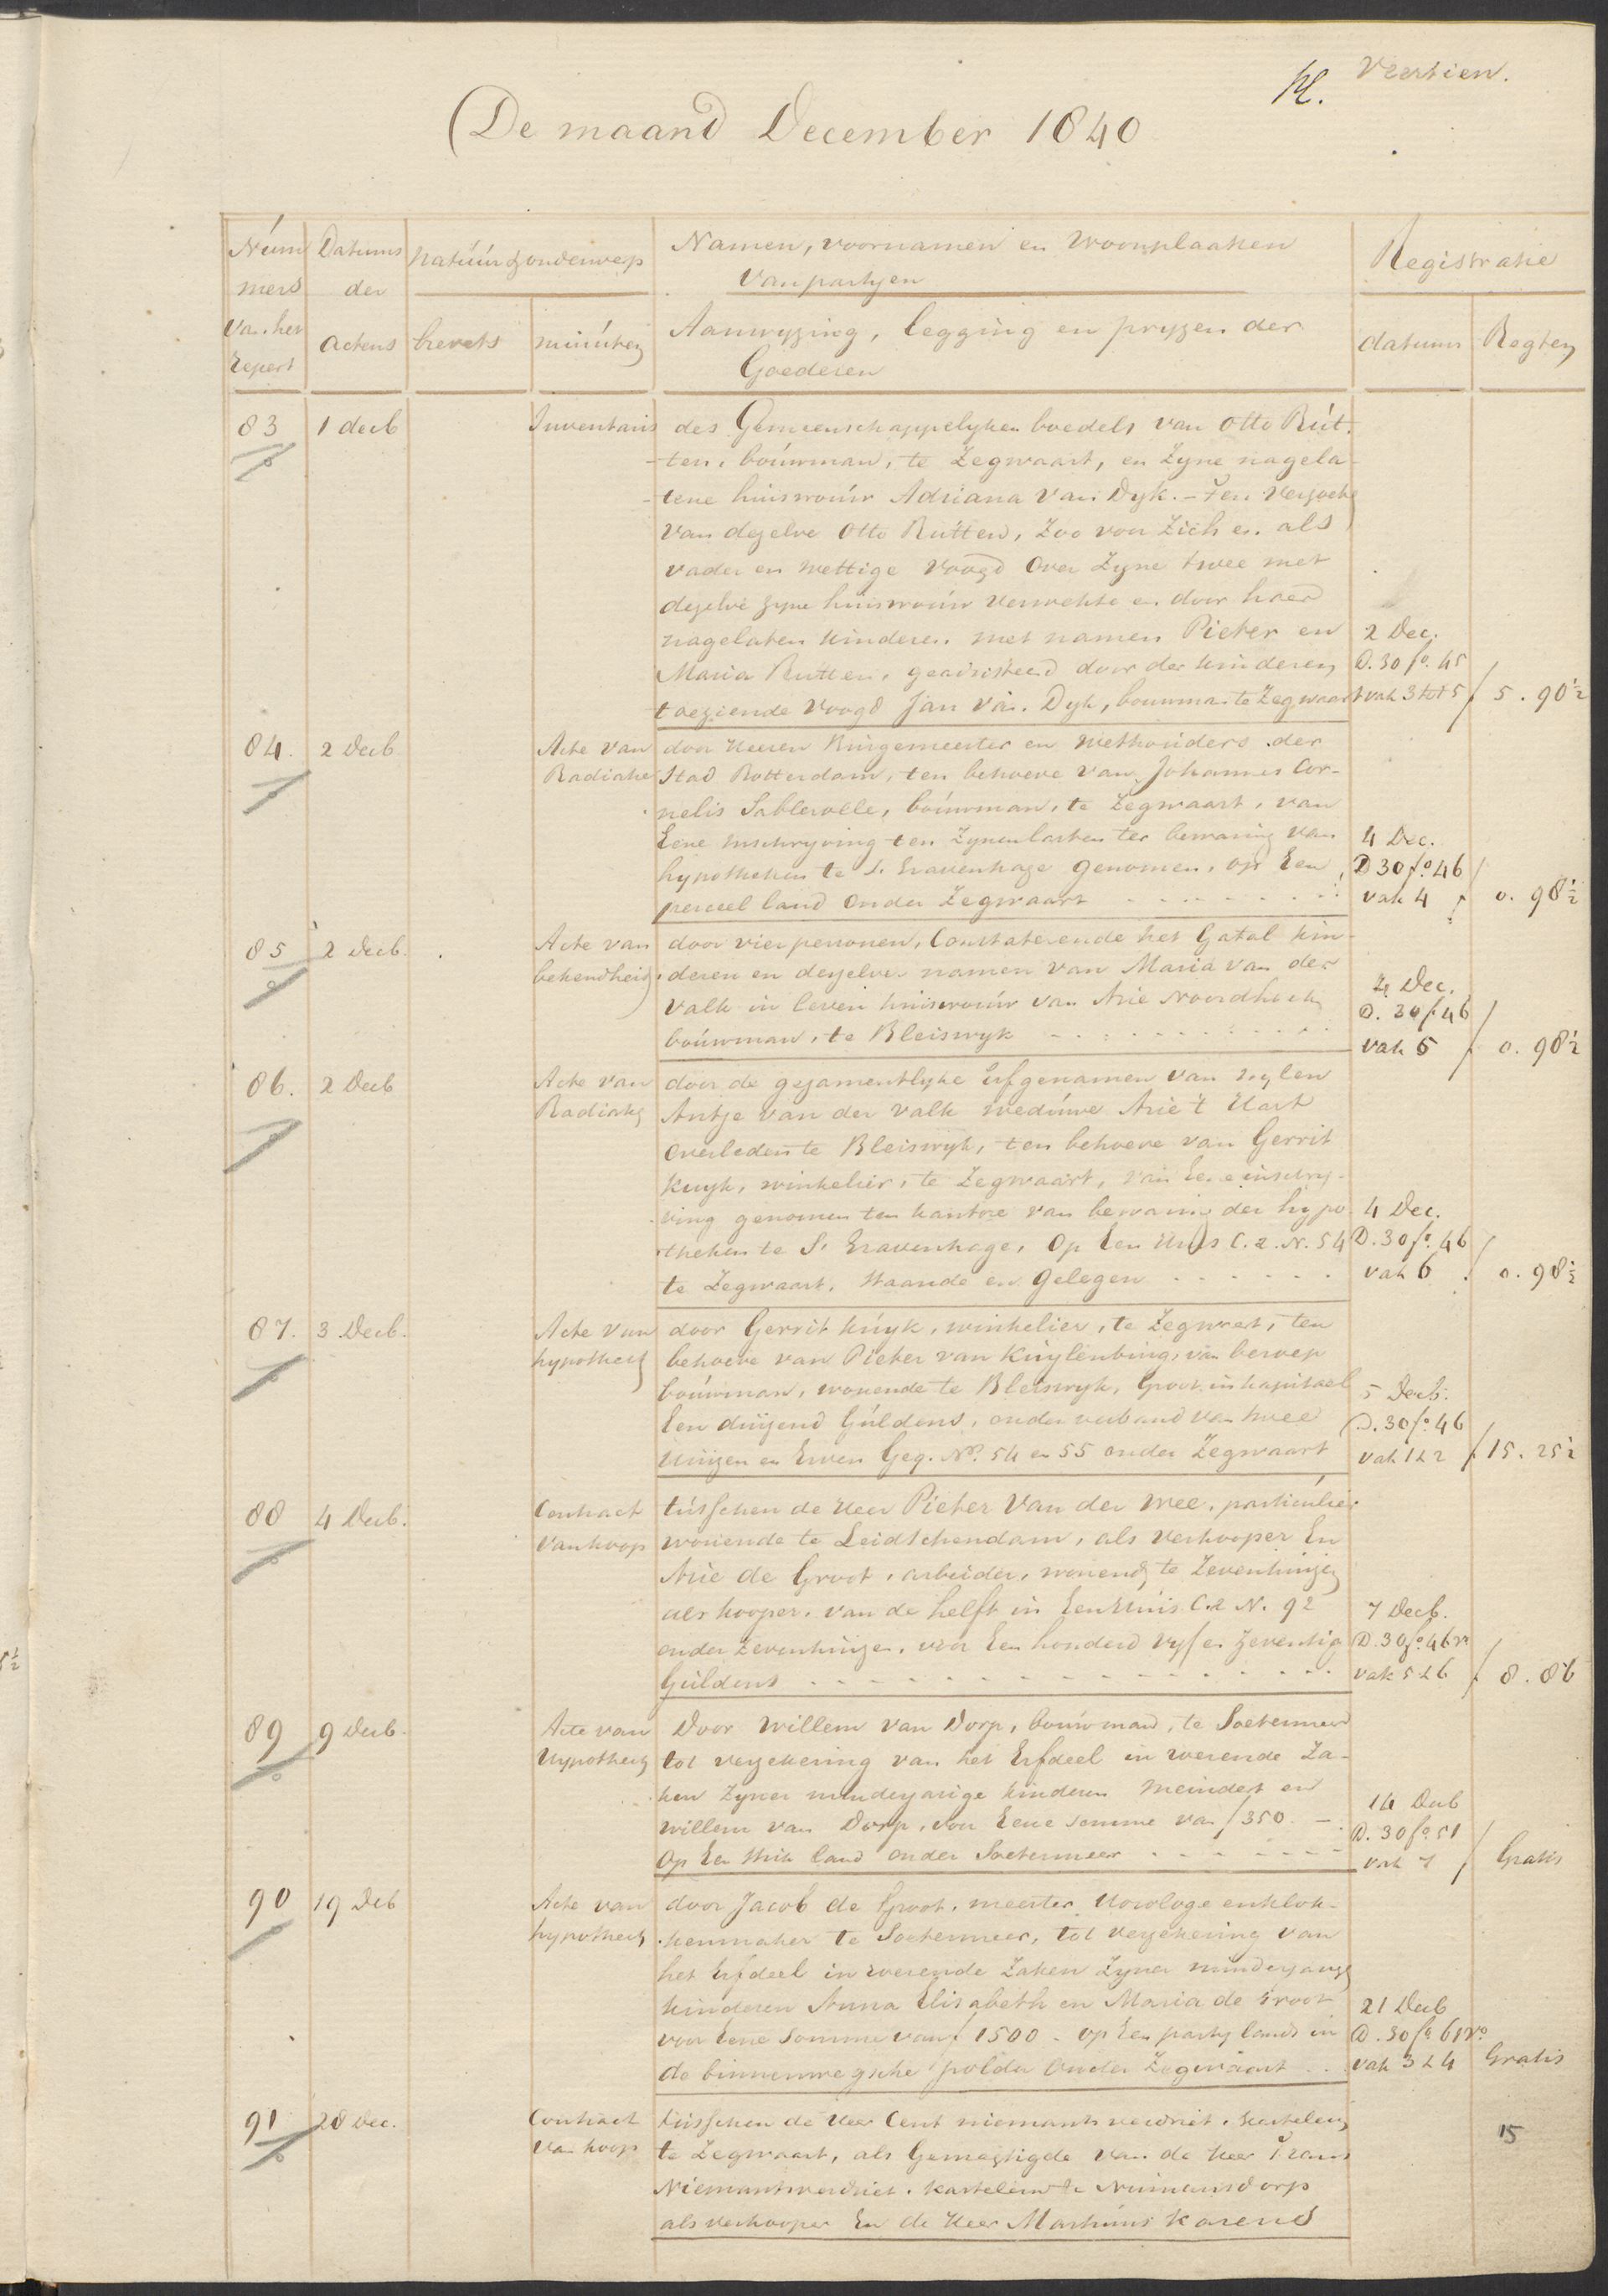 Veertien.
De maand December 1840
Num Datums natuur & onderwerp Namen, voornamen en Woonplaatsen Registratie
mers der van partyen
van het actens brevets minúten Aanwyzing, legging en pryzen der datums Regten
repert Goederen
83 1 decb Inventaris des Gemeenschappelyken boedels van Otto Rut-
ten, boúwman, te Zegwaart, en Zyne nagela-
tene huisvroúw Adriana van Dyk. - Ten verzoeke
van dezelve Otto Rutten, Zoo voor Zich en als
vader en wettige Voogd over Zyne twee met
dezelve zyne huisvroúw verwekte en door haar
nagelaten kinderen met namen Pieter en 2 Dec.
Maria Rutten, geadsisteerd door der kinderen D. 30 fo. 45
toeziende Voogd Jan van Dyk, bouwman te Zegwaart vak 3 tot 5 f 5. 90½
84. 2 Decb Acte van door Heeren Burgemeester en Wethouders der
Radiatie Stad Rotterdam, ten behoeve van Johannes Cor-
nelis Sablerolle, boúwman, te Zegwaart, van
Eene inschryving ten Zynen lasten ter bewaring van 4 Dec.
hypotheken te s Gravenhage genomen, op Een D 30 fo. 46
perceel land onder Zegwaart vak 4 f 0. 98½
85 2 Decb. Acte van door vier personen, Constaterende het Getal kin-
bekendheid deren en dezelver namen van Maria van der
Valk in leven huisvroúw van Arie Noordhoek 4 Dec.
boúwman, te Bleiswyk D. 30 f. 46
vak 5 f 0. 98½
86. 2 Decb Acte van door de gezamentlyke Erfgenamen van wylen
Radiatie Antje van der Valk weduwe Arie 't Hart
overleden te Bleiswyk, ten behoeve van Gerrit
Kuyk, winkelier, te Zegwaart, van Eene inschry-
ving genomen ten kantore van bewaring der hypo- 4 Dec.
theken te S. Gravenhage, op Een Huis C. 2. N. 54 D. 30 fo. 46
te Zegwaart, staande en gelegen vak 6 f 0. 98½
87. 3 Decb. Acte van door Gerrit Kuyk, winkelier, te Zegwaart, ten
hypotheek behoeve van Pieter van Kuylenburg, van beroep
boúwman, wonende te Bleiswyk, Groot in kapitaal 5 Decb.
Een duizend Guldens, onder verband van twee D. 30 fo. 46
Huizen en Erven Geq. No. 54 en 55 onder Zegwaart vak 1 & 2 f 15. 25½
88 4 Decb. Contract tusschen de Heer Pieter van der Mee, particulier
van koop wonende te Leidschendam, als verkooper En
Arie de Groot, arbeider, wonende te Zevenhuizen
als kooper, van de helft in Een Huis C. 2 N. 92 7 Decb.
onder Zevenhuizen, voor Een honderd vyf en Zeventig D. 30 fo. 46 vo
Guldens vak 5 & 6 f 8. 86
89 9 Decb. Acte van Door Willem van Dorp, bouwman, te Soetermeer
Hypotheek tot verzekering van het Erfdeel in roerende Za-
ken Zyner minderjarige kinderen Meindert en 14 Decb
Willem van Dorp, voor Eene somme van f 350. - D. 30 fo. 51
Op Een stuk land onder Soetermeer vak 7 f Gratis
90 19 Dcb Acte van door Jacob de Groot, meester Horologe en klok-
hypotheek kenmaker te Soetermeer, tot verzekering van
het Erfdeel in roerende Zaken Zyner minderjarige
kinderen Anna Elisabeth en Maria de Groot 21 Decb
voor Eene Somme van f 1500 - op Een party lands in D. 30 fo 61 vo
de binnenwegsche polder onder Zegwaart vak 3 & 4 Gratis
91 28 Dec. Contract tusschen de Heer Cent niemantsverdriet, kastelein
van koop te Zegwaart, als Gemagtigde van de Heer Frans 15
Niemantsverdriet, kastelein te Numansdorp
als verkooper En de Heer Martinus Karens